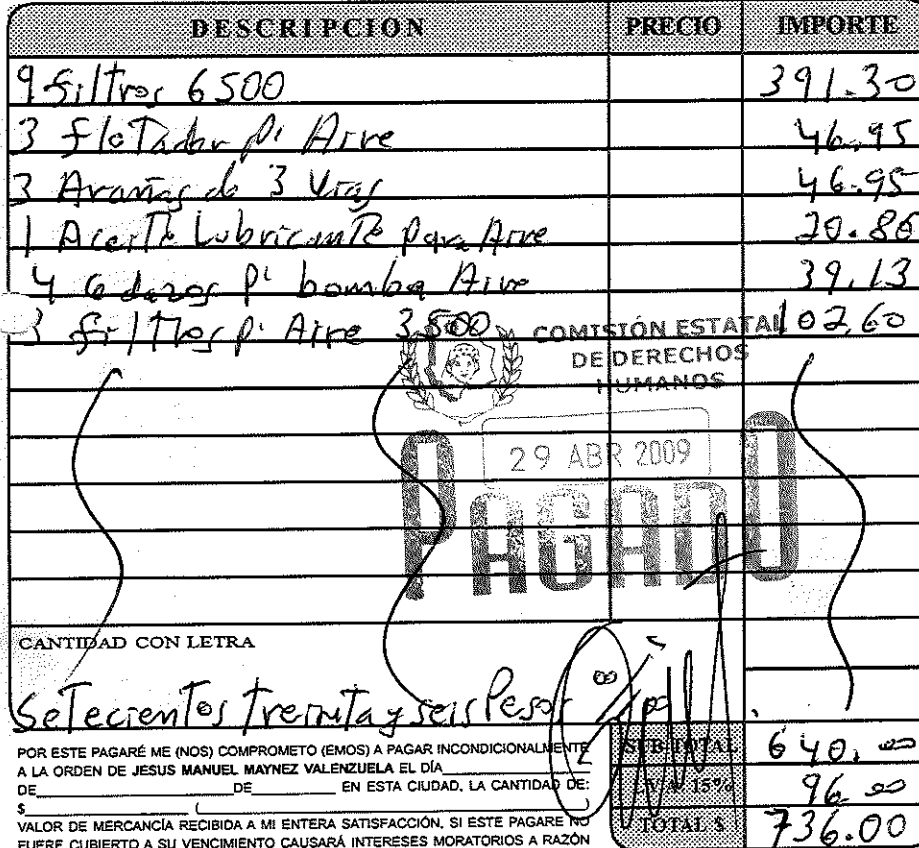 DESCRIPCION PRECIO IMPORTE
9 filtros 6500 391.30
3 flotador p' Aire 46.95
3 Arañas de 3 Vias 46.95
1 Aceite Lubricante para Aire
4 Codazos p' bomba Aire 39.13
3 filtros p' Aire 3500 102.60
COMISIÓN ESTATAL
DE DERECHOS
HUMANOS
29 ABR 2009
PAGADO
CANTIDAD CON LETRA
Setecientos treinta y seis Pesos
POR ESTE PAGARÉ ME (NOS) COMPROMETO (EMOS) A PAGAR INCONDICIONALMENTE
A LA ORDEN DE JESUS MANUEL MAYNEZ VALENZUELA EL DÍA
DE DE EN ESTA CIUDAD, LA CANTIDAD DE:
$ ( )
VALOR DE MERCANCÍA RECIBIDA A MI ENTERA SATISFACCIÓN, SI ESTE PAGARE NO
FUERE CUBIERTO A SU VENCIMIENTO CAUSARÁ INTERESES MORATORIOS A RAZÓN
SUB-TOTAL 640.00
I.V.A. 15% 96.00
TOTAL $ 736.00